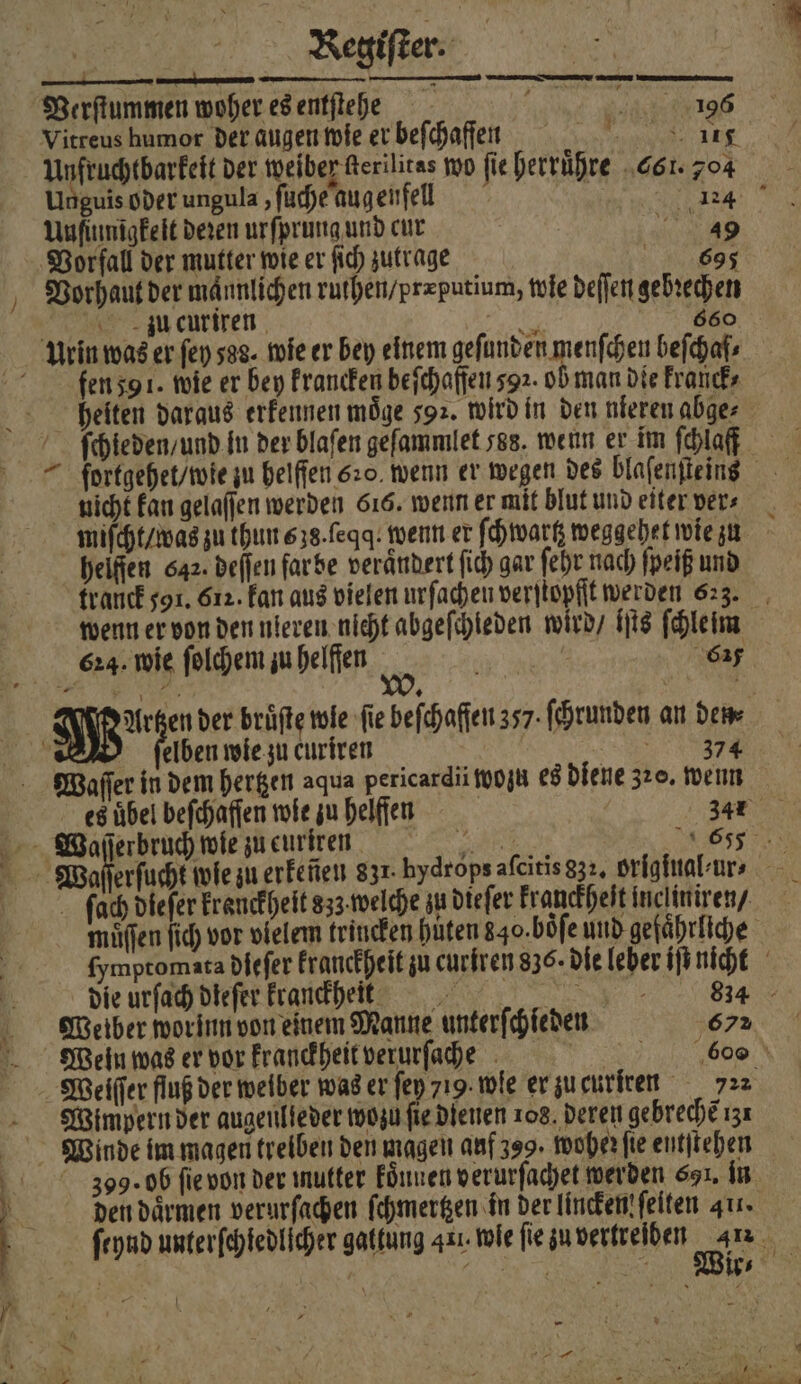 Regiſter.
Verſtummen woher es entſtehe 196
Vitreus humor der augen wie er beſchaffen 115
Unfruchtbarkeit der weiber ſterilitas wo ſie herrůhre 661. 704
Unguis oder ungula, ſuche augenfell 124
Unſinnigkeit deren urſprung und cur 49
Vorfall der mutter wie er ſich zutrage 695
Vorhaut der månnlichen ruthen/præputium, wie deſſen gebrechen
zu curiren 660
Urin was er ſey 588. wie er bey einem geſunden menſchen beſchaf⸗
fen 591. wie er bey krancken beſchaffen 592. ob man die kranck⸗
heiten daraus erkennen můge 592. wird in den nieren abge⸗
ſchieden/und in der blaſen geſammlet 588. wenn er im ſchlaff
fortgehet/wie zu helffen 620. wenn er wegen des blaſenſteins
nicht kan gelaſſen werden 616. wenn er mit blut und eiter ver⸗
miſcht/was zu thun 638. ſeqq. wenn er ſchwartz weggehet wie zu
helffen 642. deſſen farbe veråndert ſich gar ſehr nach ſpeiß und
tranck 591. 612. kan aus vielen urſachen verſtopfft werden 623.
wenn er von den nieren nicht abgeſchieden wird/ iſts ſchleim
624. wie ſolchem zu helffen 625
W.
WArtzen der brůſte wie ſie beſchaffen 357. ſchrunden an den⸗
ſelben wie zu curiren 374
Waſſer in dem hertzen aqua pericardii wozu es diene 320. wenn
es ůbel beſchaffen wie zu helffen 341
Waſſerbruch wie zu curiren 655
Waſſerſucht wie zu erkeñen 831. hydrops aſcitis 832. original⸗ur⸗
ſach dieſer kranckheit 833. welche zu dieſer kranckheit incliniren/
můſſen ſich vor vielem trincken hůten 840. bőſe und gefåhrliche
ſymptomata dieſer kranckheit zu curiren 836. die leber iſt nicht
die urſach dieſer kranckheit 834
Weiber worinn von einem Manne unterſchieden 672
Wein was er vor kranckheit verurſache 600
Weiſſer fluß der weiber was er ſey 719. wie er zu curiren 722
Wimpern der augenlieder wozu ſie dienen 108. deren gebrechẽ 131
Winde im magen treiben den magen auf 399. woher ſie entſtehen
399. ob ſie von der mutter kőnnen verurſachet werden 691. in
den dårmen verurſachen ſchmertzen in der lincken ſeiten 411.
ſeynd unterſchiedlicher gattung 411. wie ſie zu vertreiben 412
Wir⸗